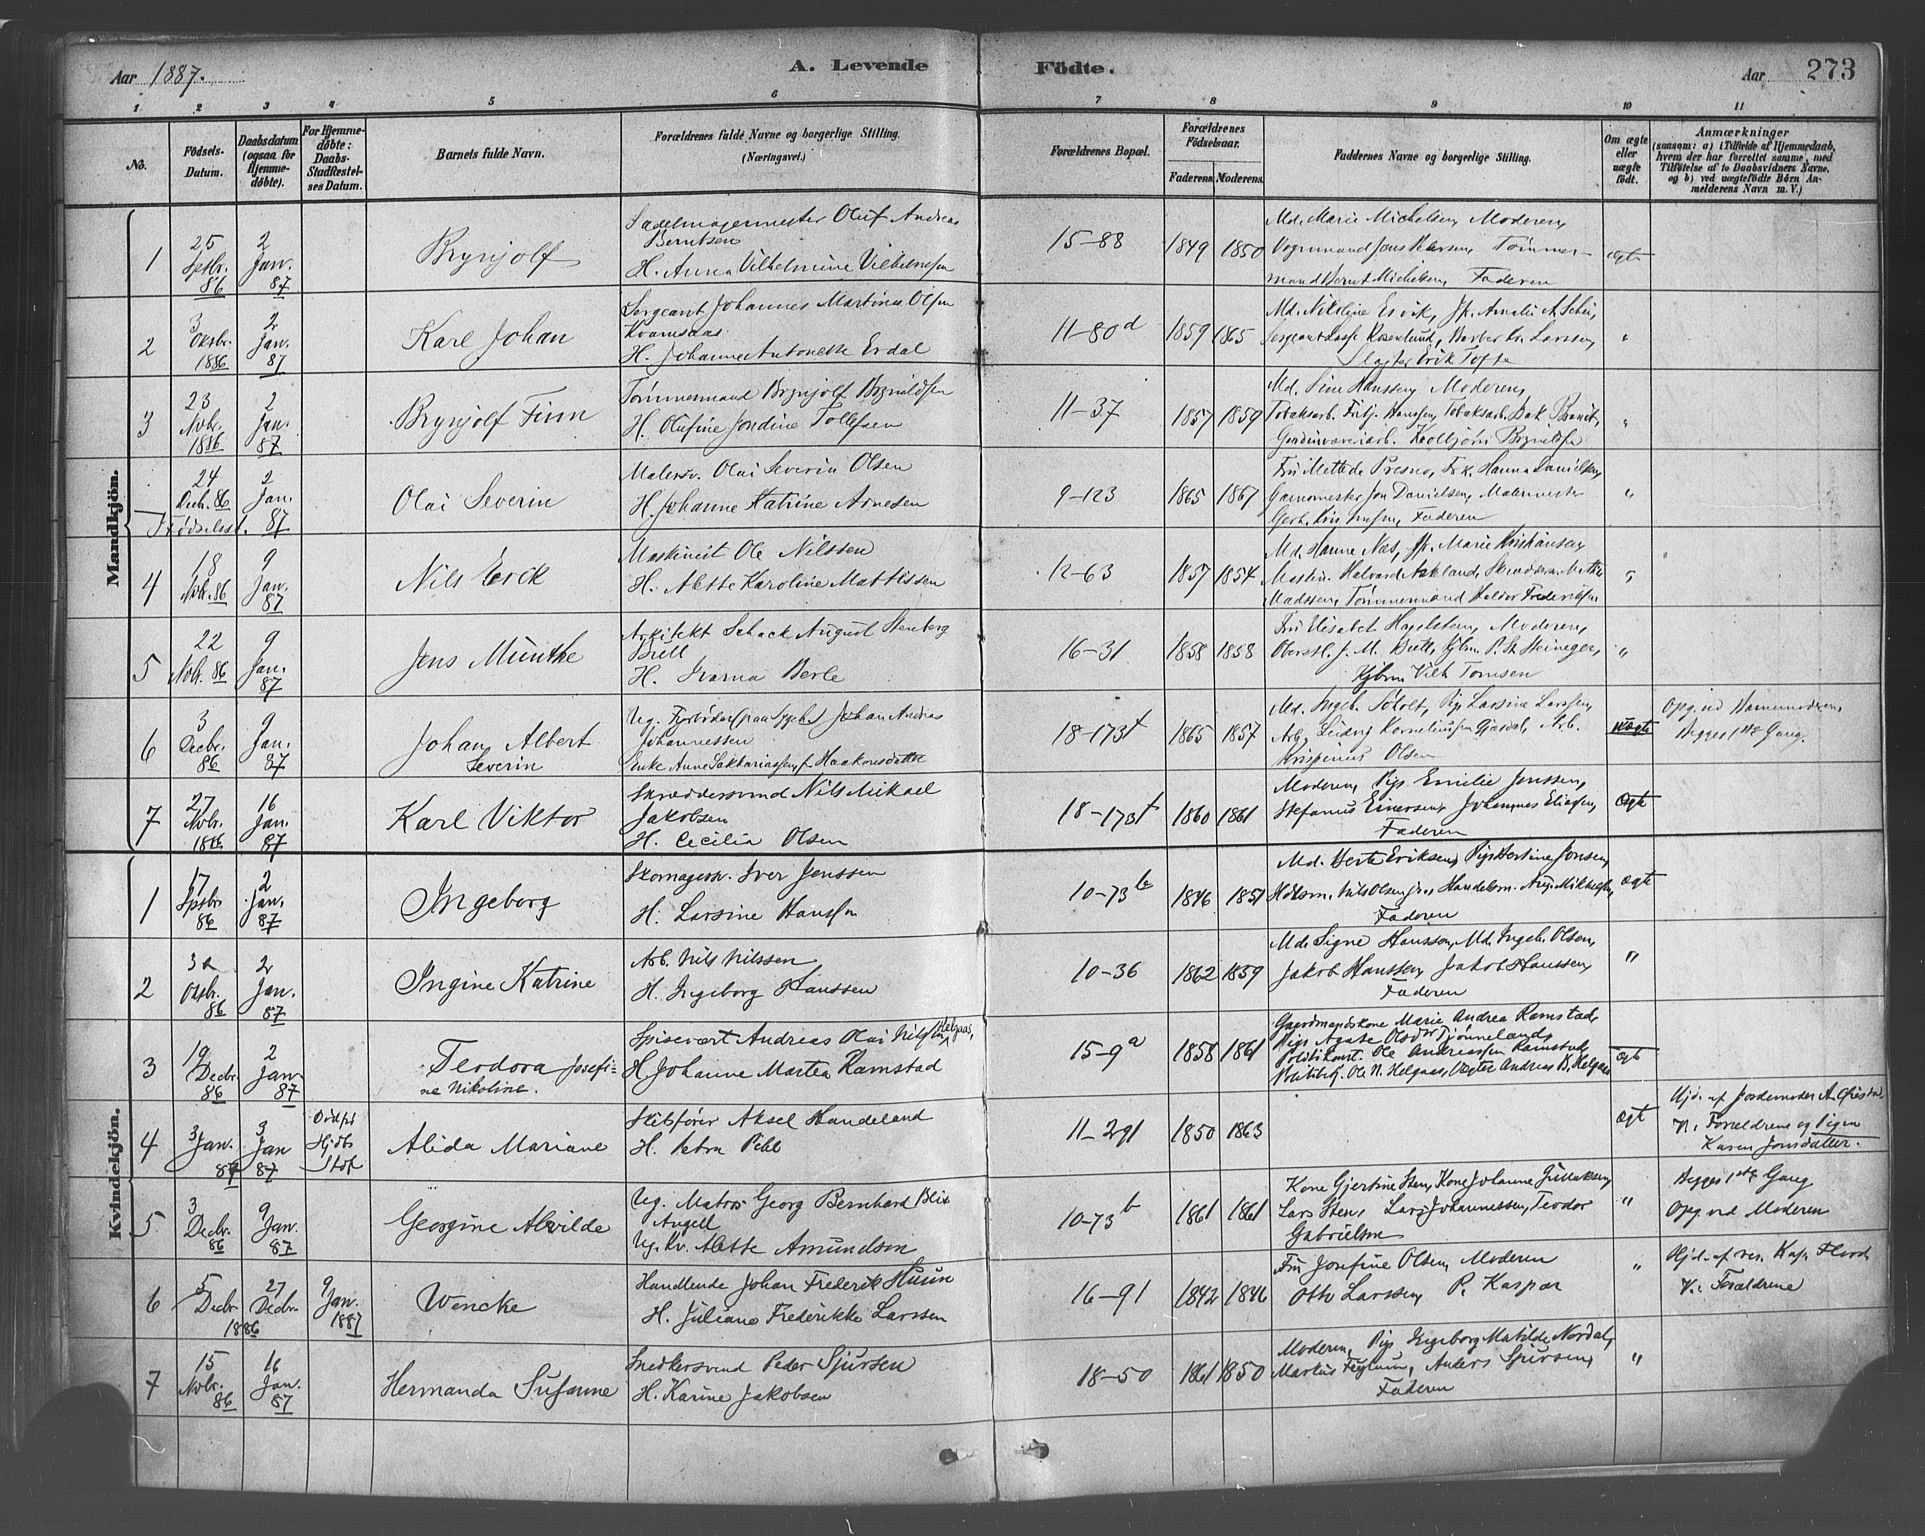 Aar 1887.
A. Levende Födte.
Aar
273
1 2 3 4 5 6 7 8 9 10 11
No.
Födsels-Datum.
Daabsdatum (ogsaa for Hjemmedöbte).
For Hjemmedöbte: Daabs-Stadfæstelses Datum.
Barnets fulde Navn.
Forældrenes fulde Navne og borgerlige Stilling. (Næringsvei.)
Forældrenes Bopæl.
Forældrenes Födselsaar.
Faderens. Moderens.
Faddernes Navne og borgerlige Stilling.
Om ægte eller uægte födt.
Anmærkninger
(saasom: a) i Tilfælde af Hjemmedaab, hvem der har forrettet samme, med Tilföielse af to Daabsvidners Navne, og b) ved uægtefödte Börn Anmelderens Navn m. V.)
Mandkjön.
1
25 Sptbr. 86
2 Jan. 87
Brynjolf
Sadelmagermester Oluf Andreas
Berntsen
H. Anna Vilhelmine Vilhelmsen
15-88
1849 1850
Md. Marie Michelsen, Moderen,
Vognmand Jens Larsen, Tømmer-
mand Bernt Michelsen, Faderen
ægte
2
3 Oktbr. 1886
2 Jan. 87
Karl Johan
Sergeant Johannes Martinus Olsen
Kvamsaas
H. Johanne Antonette Erdal
11-80d
1859 1865
Md. Nikoline Ervik, Jfr. Amalie A. Schei,
Sergeant Rosenlund, Barber Larssen,
Slagter Erik Tofte
"
3
23 Novbr. 1886
2 Jan. 87
Brynjolf Finn
Tømmermand Brynjolf Brynildsen
H. Olufine Jondine Tollefsen
11-37
1857 1859
Md. Sine Hanssen, Moderen,
Tobaksarb. Fritj. Hanssen, Tobaksarb.
Kolbjørn Brynildsen
"
24 Decbr. 86
2 Jan. 87
Fødselsst.
Olai Severin
Malersv. Olai Severin Olsen
H. Johanne Katrine Arnesen
9-123
1865 1867
Fru Mettede Presno, Frk. Hanna Danielsen,
Garnmester Jon Danielsen, Malermester
Faderen
"
4
18 Novbr. 86
9 Jan. 87
Nils Erck
Maskinist Ole Nilssen
H. Alette Karoline Mattissen
12-63
1857 1854
Md. Hanne Næs, Jfr. Marie Kristiansen,
Maskin. Halvard Aakland,
Madssen, Tømmermand Halvor Frederiksen
"
5
22 Novbr. 86
9 Jan. 87
Jens Munthe
Arkitekt Schack August Stenberg
Bull
H. Ivarna Berle
16-31
1858 1858
Fru Elisabet Hagelsten, Moderen,
Oberstl. J. M. Bull, Kjbm. P. St. Heineger,
Kjbm Vilh Tomsen
"
6
3 Decbr. 86
9 Jan. 87
Johan Albert
Severin
Ug. Fyrbøder Johan Andreas
Johannessen
Enke Anne Sakkariassen, f. Haakonsdatter
18-173t
1865 1857
Md. Ingeb. Soholt, Pige Larsine Larssen,
Arb. Ludvig Kornelius Gjøsdal, Arb.
Krispinus Olsen
uægte
Opg. ved
Begges 1ste Gang.
7
27 Novbr. 1886
16 Jan. 87
Karl Viktor
Skræddersvend Nils Mikael
Jakobsen
H. Cecilia Olsen
18-173t
1860 1861
Moderen, Pige Emilie Jenssen,
Stefanus Einersen, Johannes Eliasen,
Faderen
Ægte
Kvindekjön.
1
17 Sptbr. 86
2 Jan. 87
Ingeborg
Skomagersv. Iver Jenssen
H. Larsine Hanssen
10-73b
1846 1851
Md. Berte Eriksen, Pige Bertine Jonsen,
Nils Olsen, Handelsm. Mikkelsen,
Faderen
ægte
2
30 Oktbr. 86
2 Jan. 87
Ingine Katrine
Arb. Nils Nilssen
H. Ingeborg Hanssen
10-36
1862 1859
Md. Signe Hanssen, Md. Ingeb. Olsen,
Jakob Hanssen, Jakob Hanssen,
Faderen
"
3
19 Decbr 86
2 Jan. 87
Teodora Josefi-
ne Nikoline.
Spisevært Andreas Olai Nilsen Helgaas,
H. Johanne Martea Ramstad
15-9a
1858 1861
Gaardmandskone Marie Andrea Ramstad,
Pige Agate Olsdtr Tjønneland,
Politikonst. Ole Andreassen Ramstad,
Politibtj. Ole N. Helgaas, Vægter Andreas B. Helgaas
ægte
4
3 Jan. 87
3 Jan 87
Dødfød
Alida Mariane
Skibsfører Aksel Handeland
H. Petra Pehl
11-291
1850 1863
ægt
Hjd. af Jordemoder
V. Forældrene og Pigen
Karen Jonsdatter.
5
3 Decbr. 86
9 Jan. 87
Georgine Alvilde
Ug. Matros Georg Bernhard Blix
Angell
Ug. Kv. Alette Amundsen
10-73b
1861 1861
Kone Gjertine Sten, Kone Johanne
Lars Sten, Lars Johannessen, Teodor
Gabrielsen
"
Begges 1ste Gang
Opg. ved Moderen
6
5 Decbr.
27 Decbr. 1886
9 Jan. 1887
Wencke
Handlende Johan Frederik Huun
H. Juliane Frederikke Larssen
16-91
1842 1846
Fru Josefine Olsen, Moderen
Otto Larssen, P. Kaspar
"
Hjd. af res. Kap. Flood
V.: Forældrene
7
15 Novbr. 86
16 Jan. 87
Hermanda Susanne
Snedkersvend Peder Sjursen
H. Karine Jakobsen
18-50
1861 1850
Moderen, Pige Ingeborg Matilde Nordal,
Markus Fuglum, Anders Sjursen,
Faderen
"